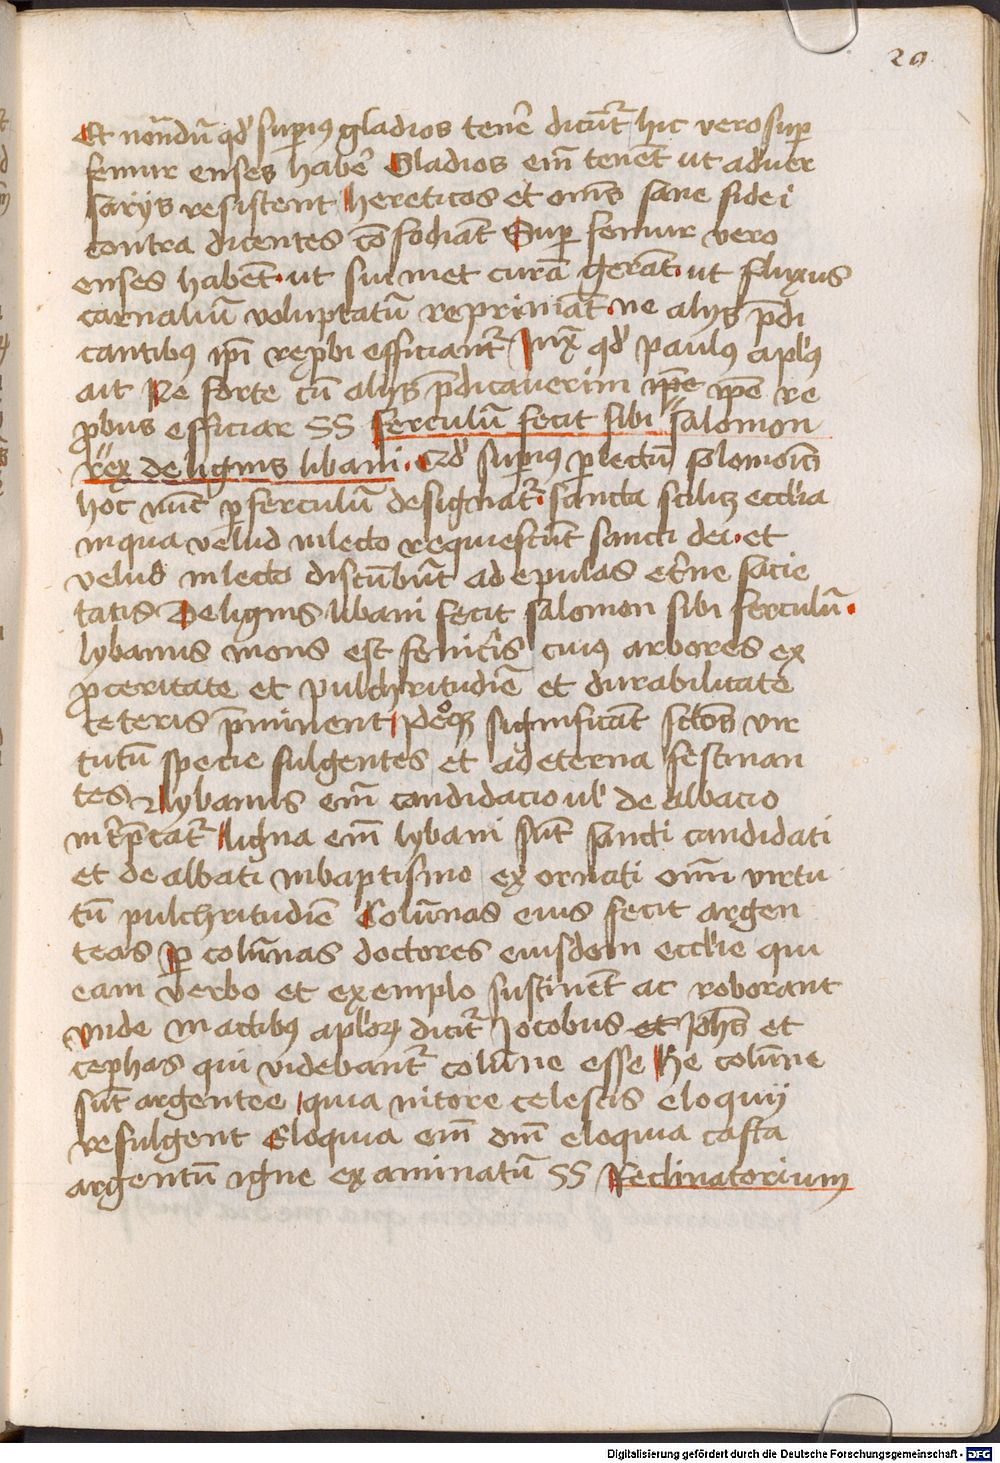 29
Et notandū qd' superius gladios tenē dicūt' hic vero sup
femur enses habē Gladios em̄ tenēt ut aduer
sarijs resistent hereticos et om̄s sane fidei
contra dicentes cōfodiāt Super femur vero
enses habēt ut sui met curā gerāt ut fluxus
carnaliū voluptatū repriniāt ne alijs p̄di
cantibus ip̄i reprobi efficiant' Iuxͣ qd' paulus apl'us
ait Ne forte cū alijs p̄dicauerim ip̄e ip̄e re
probus efficiar SS ferculū fecit sibi salomon
rex de lignis libani Qd' superius per lectū solomōis
hoc nūc per ferculū designat' sancta scilicꝫ eccl'ia
in qua velud in lecto requiescūt sancti dei et
velud in lecto discūbūt ad epulas et'ne sacie
tatis De lignis libani fecit salomon sibi ferculū
lybanus mons est fenicis cuius arbores ex
proceritate et pulchritudīe et durabilitate
ceteris p̄minent Ideoqꝫ significāt sc̄tos vir
tutū specie fulgentes et ad eterna festinan
tes Lybanus em̄ candidacio ul' de albacio
int'p̄tat' ligna em̄ lybani sūt sancti candidati
et de albati in baptismo ex ornati om̄i virtu
tū pulchritudīe Colūnas eius fecit argen
teas per colūnas doctores eiusdem eccl'ie qui
eam verbo et exemplo sustinēt ac roborant
vnde in actibus apl'oꝝ dicit' Jacobus et Joh̄s et
cephas qui videbant' colūne esse He colūne
sūt argentee quia nitore celestis eloquij
refulgent Eloquia em̄ dn̄i eloquia casta
argentū igne examinatū SS Reclinatorium
Digitalisierung gefördert durch die Deutsche Forschungsgemeinschaft - DFG